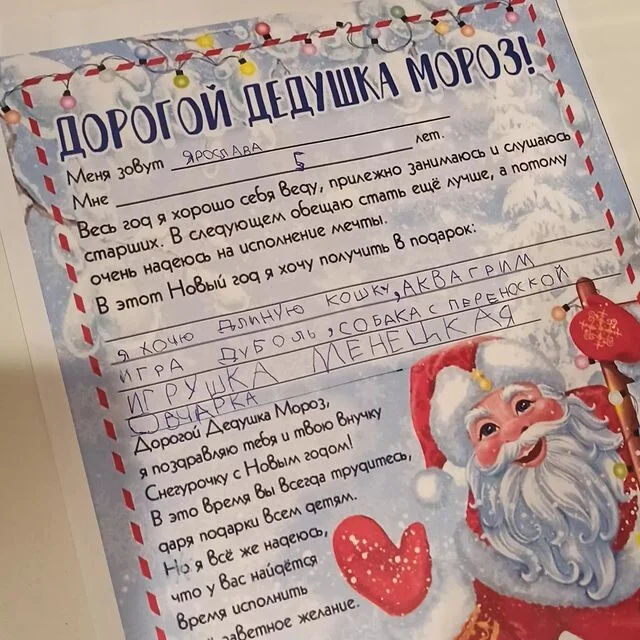 ДОРОГОЙ ДЕДУШКА МОРОЗ!
Меня зовут ЯРОСЛАВА
Мне 5 лет.
Весь год я хорошо себя веду, прилежно занимаюсь и слушаюсь
старших. В следующем обещаю стать ещё лучше, а потому
очень надеюсь на исполнение мечты.
В этот Новый год я хочу получить в подарок:
Я ХОЧЮ ДЛИНУЮ КОШКУ, АКВАГРИМ
ИГРА ДУБОЛЬ, СОБАКА С ПЕРЕНОСКОЙ
ИГРУШКА МЕНЕЦКАЯ
ОВЧАРКА
Дорогой Дедушка Мороз,
я поздравляю тебя и твою внучку
Снегурочку с Новым годом!
В это время Вы всегда трудитесь,
даря подарки всем детям.
Но я всё же надеюсь,
что у Вас найдётся
время исполнить
заветное желание.